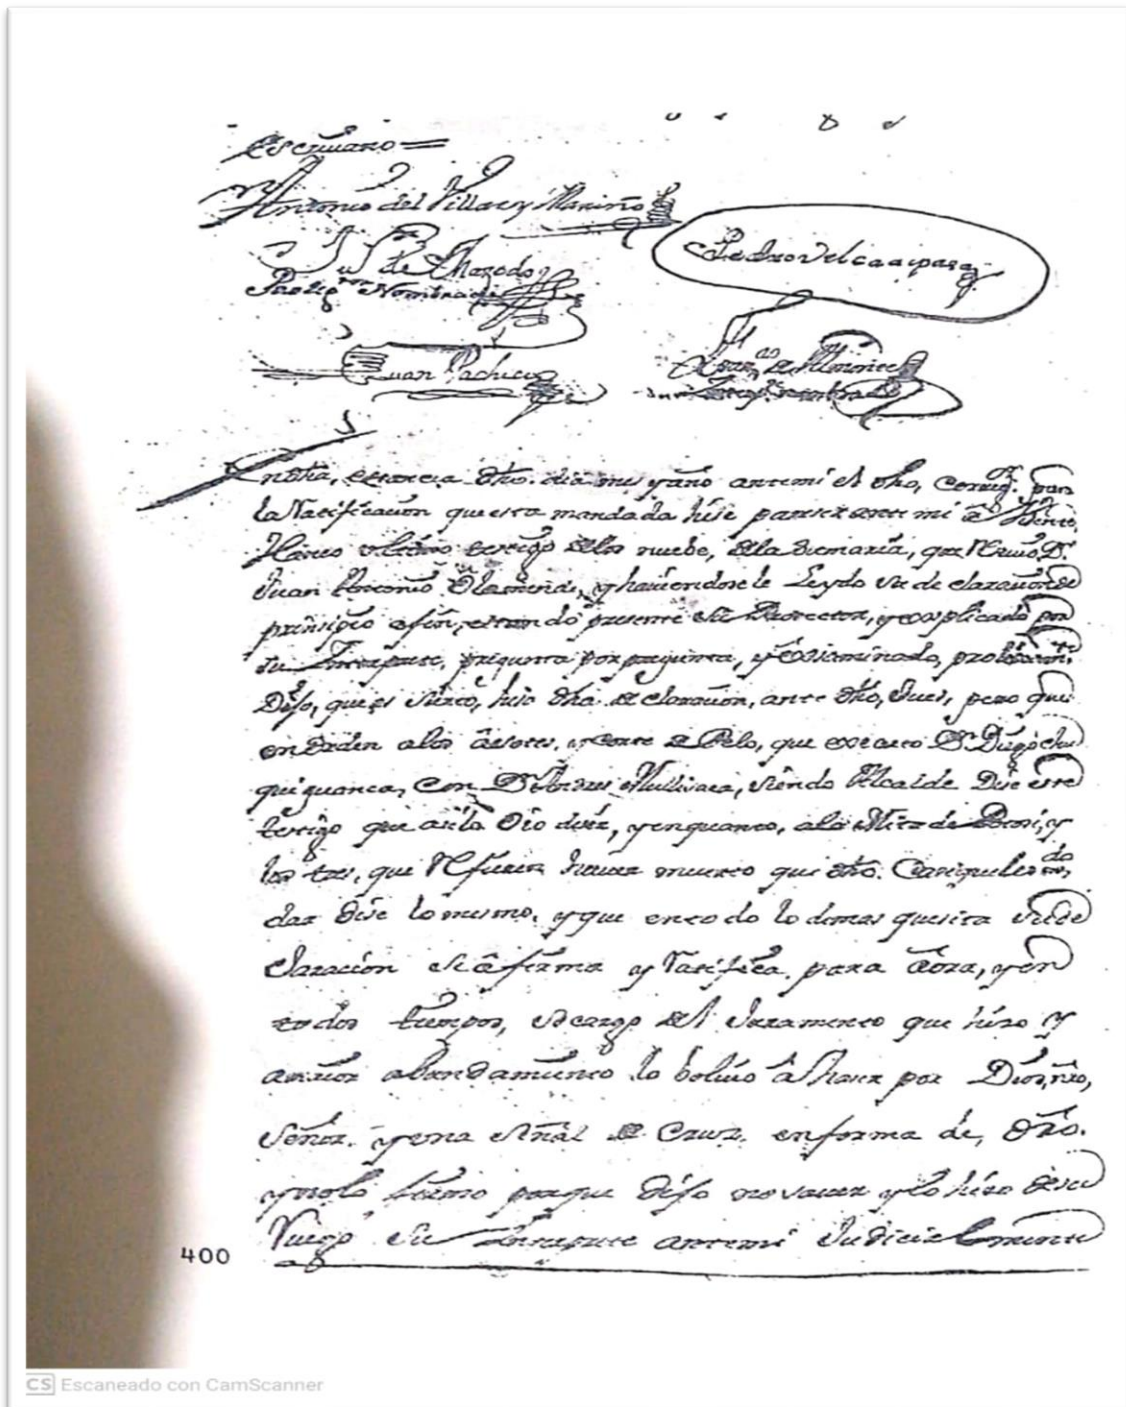 Escriuano =
Antonio del Villar y Mariño
Pedro Velca
de
Nombrado
Juan Pacheco
nombrado
dho. dia mes y año antemi el dho, Correxr. para
la Ratificacion que esta mandada hise pareser ante mi a
testigo de los nuebe, de la sumaria, que Resiuio Dn.
Juan Antonio y hauiendosele Leydo su declarasion de
prinsipio afin, estando presente su Protector, y explicado por
su Interprete, pregunta por pregunta, y exsaminado,
Dijo, que es sierto, hiso dha. declarasion, ante dho, Jues, pero que
en orden alos asotes, y corte de Pelo, que executo Dn. Diego chu
quiguanca, Con Dn. Andres siendo Alcalde Dise este
testigo que asilo Oio desir, y enquanto, ala Mita de Potosi, y
los tres, que Refiere hauer muerto que dho. Casique
dar Dise lo mesmo, y que entodo lo demas questa sude
clarasion se afirma y Ratifica, para aora, y en
todos tiempos, so cargo del Juramento que hiso y
amaior abundamiento lo boluio â haser por Dios, nro,
Señor. y una señal de Cruz. enforma de, dro.
y nolo firmo porque dijo no sauer y lo hiso asu
Ruego su Interprete antemi Judicialmente
400
CS Escaneado con CamScanner